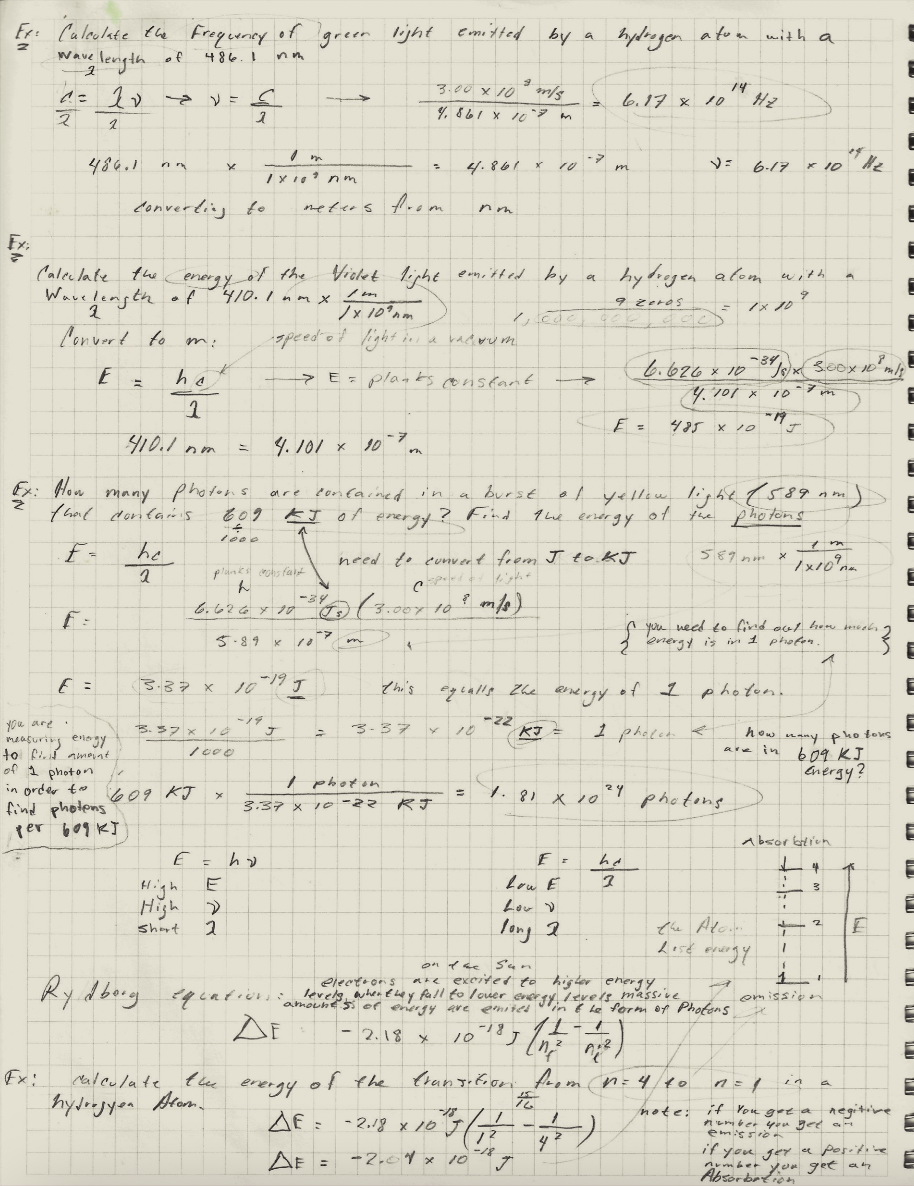 Ex: Calculate the Frequency of green light emitted by a hydrogen atom with a
wavelength of 486.1 nm
λ
c/λ = λν/λ → ν = c/λ → 3.00 × 10⁸ m/s / 4.861 × 10⁻⁷ m = 6.17 × 10¹⁴ Hz
486.1 nm × 1 m / 1×10⁹ nm = 4.861 × 10⁻⁷ m ν = 6.17 × 10¹⁴ Hz
converting to meters from nm
Ex:
Calculate the energy of the Violet light emitted by a hydrogen atom with a
Wavelength of 410.1 nm × 1m / 1×10⁹nm
λ
9 zeros
1,000,000,000 = 1×10⁹
Convert to m: speed of light in a vacuum
E = hc/λ → E = planks constant → 6.626 × 10⁻³⁴ Js × 3.00×10⁸ m/s / 4.101 × 10⁻⁷ m
E = 485 × 10⁻¹⁹ J
410.1 nm = 4.101 × 10⁻⁷ m
Ex: How many photons are contained in a burst of yellow light (589 nm)
that contains 609 KJ of energy? Find the energy of the photons
÷
1000
E = hc/λ need to convert from J to KJ 589 nm × 1 m / 1×10⁹ nm
planks constant speed of light
h c
E = 6.626 × 10⁻³⁴ Js (3.00 × 10⁸ m/s) / 5.89 × 10⁻⁷ m
{ you need to find out how much
energy is in 1 photon. }
E = 3.37 × 10⁻¹⁹ J this equalls the energy of 1 photon.
3.37 × 10⁻¹⁹ J / 1000 = 3.37 × 10⁻²² KJ = 1 photon ← how many photons
are in 609 KJ
Energy?
you are
measuring energy
to find amount
of 1 photon
in order to
find photons
per 609 KJ
609 KJ × 1 photon / 3.37 × 10⁻²² KJ = 1.81 × 10²⁴ photons
Absorbtion
E = hν E = hc/λ
High E Low E
High ν Low ν
short λ long λ
4
3
2
1
E
the Atom
List energy
omission
on the Sun
Rydborg equation: electrons are excited to higher energy
levels, when they fall to lower energy levels massive
amounts of energy are emited in the form of Photons
△E -2.18 × 10⁻¹⁸ J (1/n_f² - 1/n_i²)
Ex: calculate the energy of the transition from n=4 to n=1 in a
hydrogyen Atom.
15/16
△E = -2.18 × 10⁻¹⁸ J (1/1² - 1/4²)
△E = -2.04 × 10⁻¹⁸ J
note: if You get a negitive
number you get an
emission
if you get a positive
number you get an
Absorbtion